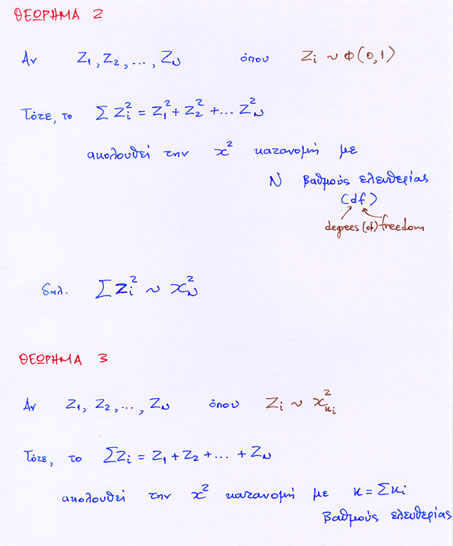 ΘΕΩΡΗΜΑ 2
Αν Z₁, Z₂, ..., Z_N όπου Z_i ~ Φ(0,1)
Τότε, το Σ Z_i² = Z₁² + Z₂² + ... Z_N²
ακολουθεί την x² κατανομή με
N βαθμούς ελευθερίας
(df)
degrees (of) freedom
δηλ. Σ Z_i² ~ x²_N
ΘΕΩΡΗΜΑ 3
Αν Z₁, Z₂, ..., Z_N όπου Z_i ~ x²_{κ_i}
Τότε, το ΣZ_i = Z₁ + Z₂ + ... + Z_N
ακολουθεί την x² κατανομή με κ = Σκ_i
βαθμούς ελευθερίας